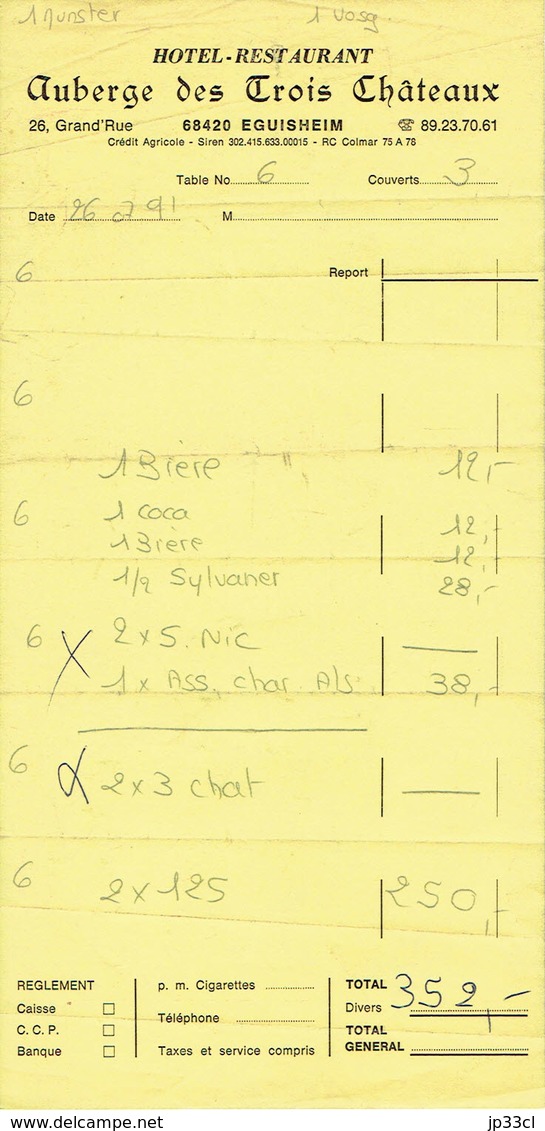 1 Munster 1 Vosg
HOTEL-RESTAURANT
Auberge des Trois Châteaux
26, Grand'Rue 68420 EGUISHEIM ☎ 89.23.70.61
Crédit Agricole - Siren 302.415.633.00015 - RC Colmar 75 A 78
Table No 6 Couverts 3
Date 26 07 91 M
6 Report
6
1 Bière " 12,-
6 1 coca 12,-
1 Bière 12,-
1/2 Sylvaner 28,-
6 2 x S. Nic
1 x Ass. char Als 38,-
6 2 x 3 chat
6 2 x 125 250,-
REGLEMENT p. m. Cigarettes TOTAL 352,-
Caisse Téléphone Divers
C. C. P. TOTAL
Banque Taxes et service compris GENERAL
delcampe.net jp33cl